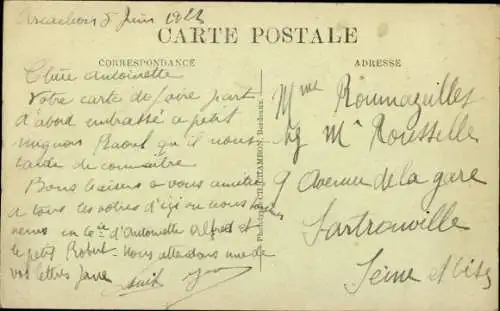 Arcachon 5 Juin 1922
CARTE POSTALE
CORRESPONDANCE
ADRESSE
Chère Antoinette
Votre carte de faire part
d'abord embrassé ce petit
mignon Raoul qu'il nous
tarde de connaître
Bons baisers a vous
a tous les votres d'ici ou nous
en d'Antoinette Alfred et
le petit Robert. Nous attendons une de
vos lettres
Mme Roumazeilles
chez Mr Rousselle
9 Avenue de la gare
Sartrouville
Seine et Oise
Phototypie CHAMBON, Bordeaux